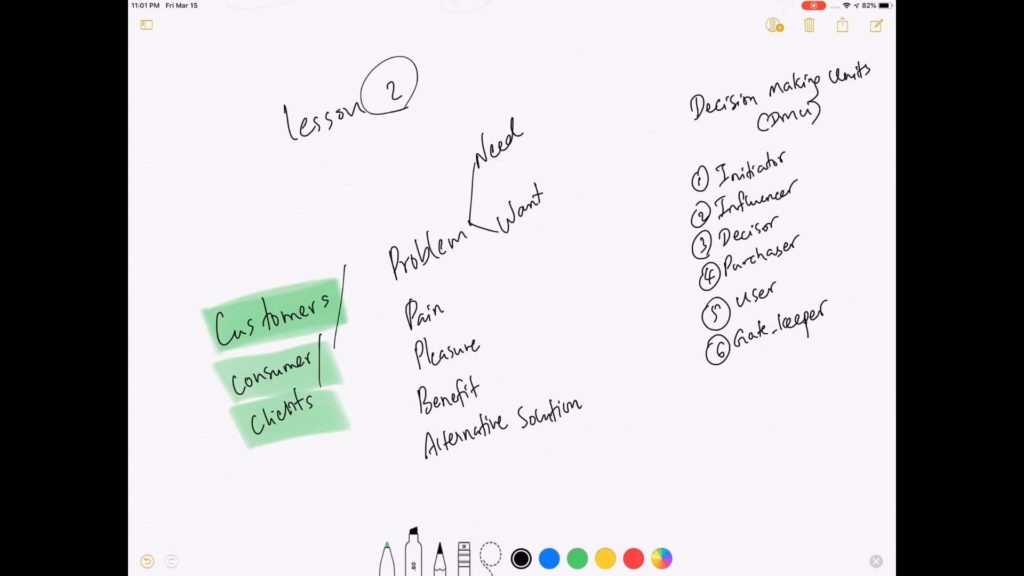 11:01 PM Fri Mar 15
82%
Lesson 2
Need
Problem
Want
Customers/
Consumer/
Clients
Pain
Pleasure
Benefit
Alternative Solution
Decision Making Units
(DMU)
1 Initiator
2 Influencer
3 Decisor
4 Purchaser
5 User
6 Gate-keeper
.80